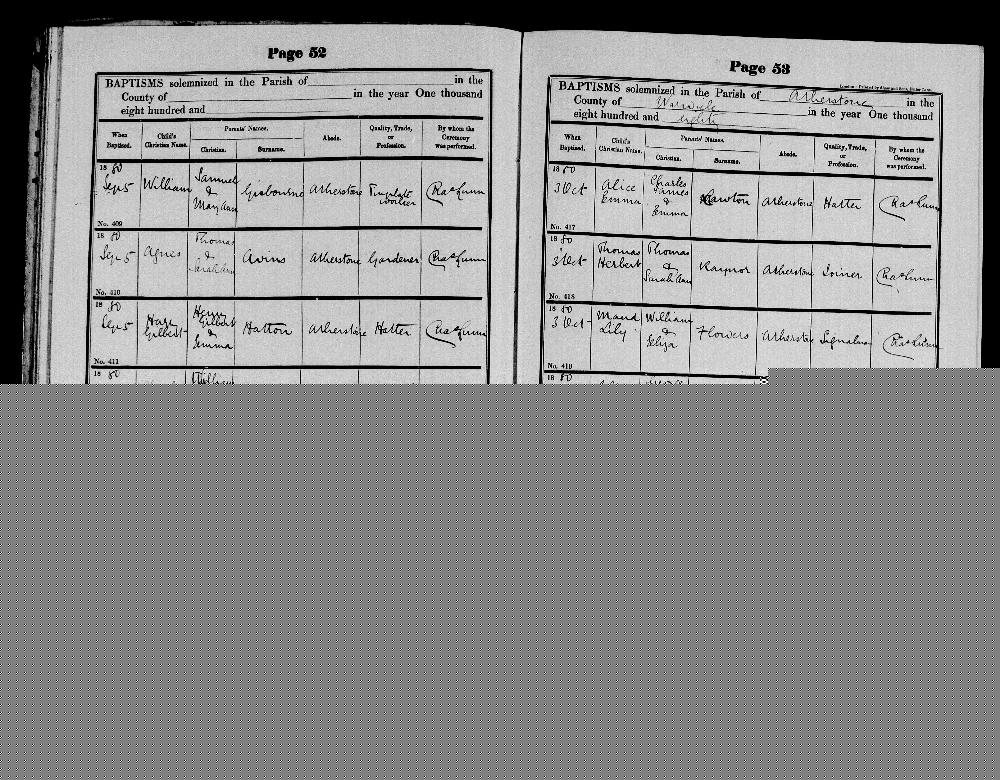 Page 52
BAPTISMS solemnized in the Parish of in the
County of in the year One thousand
eight hundred and
When Baptised. Child's Christian Name. Parents' Names. Christian. Surname. Abode. Quality, Trade, or Profession. By whom the Ceremony was performed.
1880
Sep 5 William Samuel & Mary Ann Gisbourne Atherstone Tinplate worker
No. 409
1880
Sep 5 Agnes Thomas & Sarah Ann Avins Atherstone Gardener
No. 410
1880
Sep 5 Gilbert Henry Gilbert & Emma Hatton Atherstone Hatter
No. 411
1880
William
Page 53
BAPTISMS solemnized in the Parish of Atherstone in the
County of Warwick in the year One thousand
eight hundred and eighty
When Baptised. Child's Christian Name. Parents' Names. Christian. Surname. Abode. Quality, Trade, or Profession. By whom the Ceremony was performed.
1880
3 Oct Alice Emma Charles James & Emma Lawton Atherstone Hatter
No. 417
1880
3 Oct Thomas Herbert Thomas & Sarah Ann Raynor Atherstone Joiner
No. 418
1880
3 Oct Maud Lily William & Eliza Flowers Atherstone Signalman
No. 419
1880